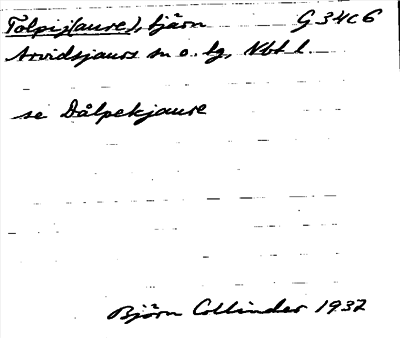 Tolpij(aure), tjärn G 34c6
Arvidsjaurs sn o. lg, Nbt l.
se Dålpekjaure
Björn Collinder 1937